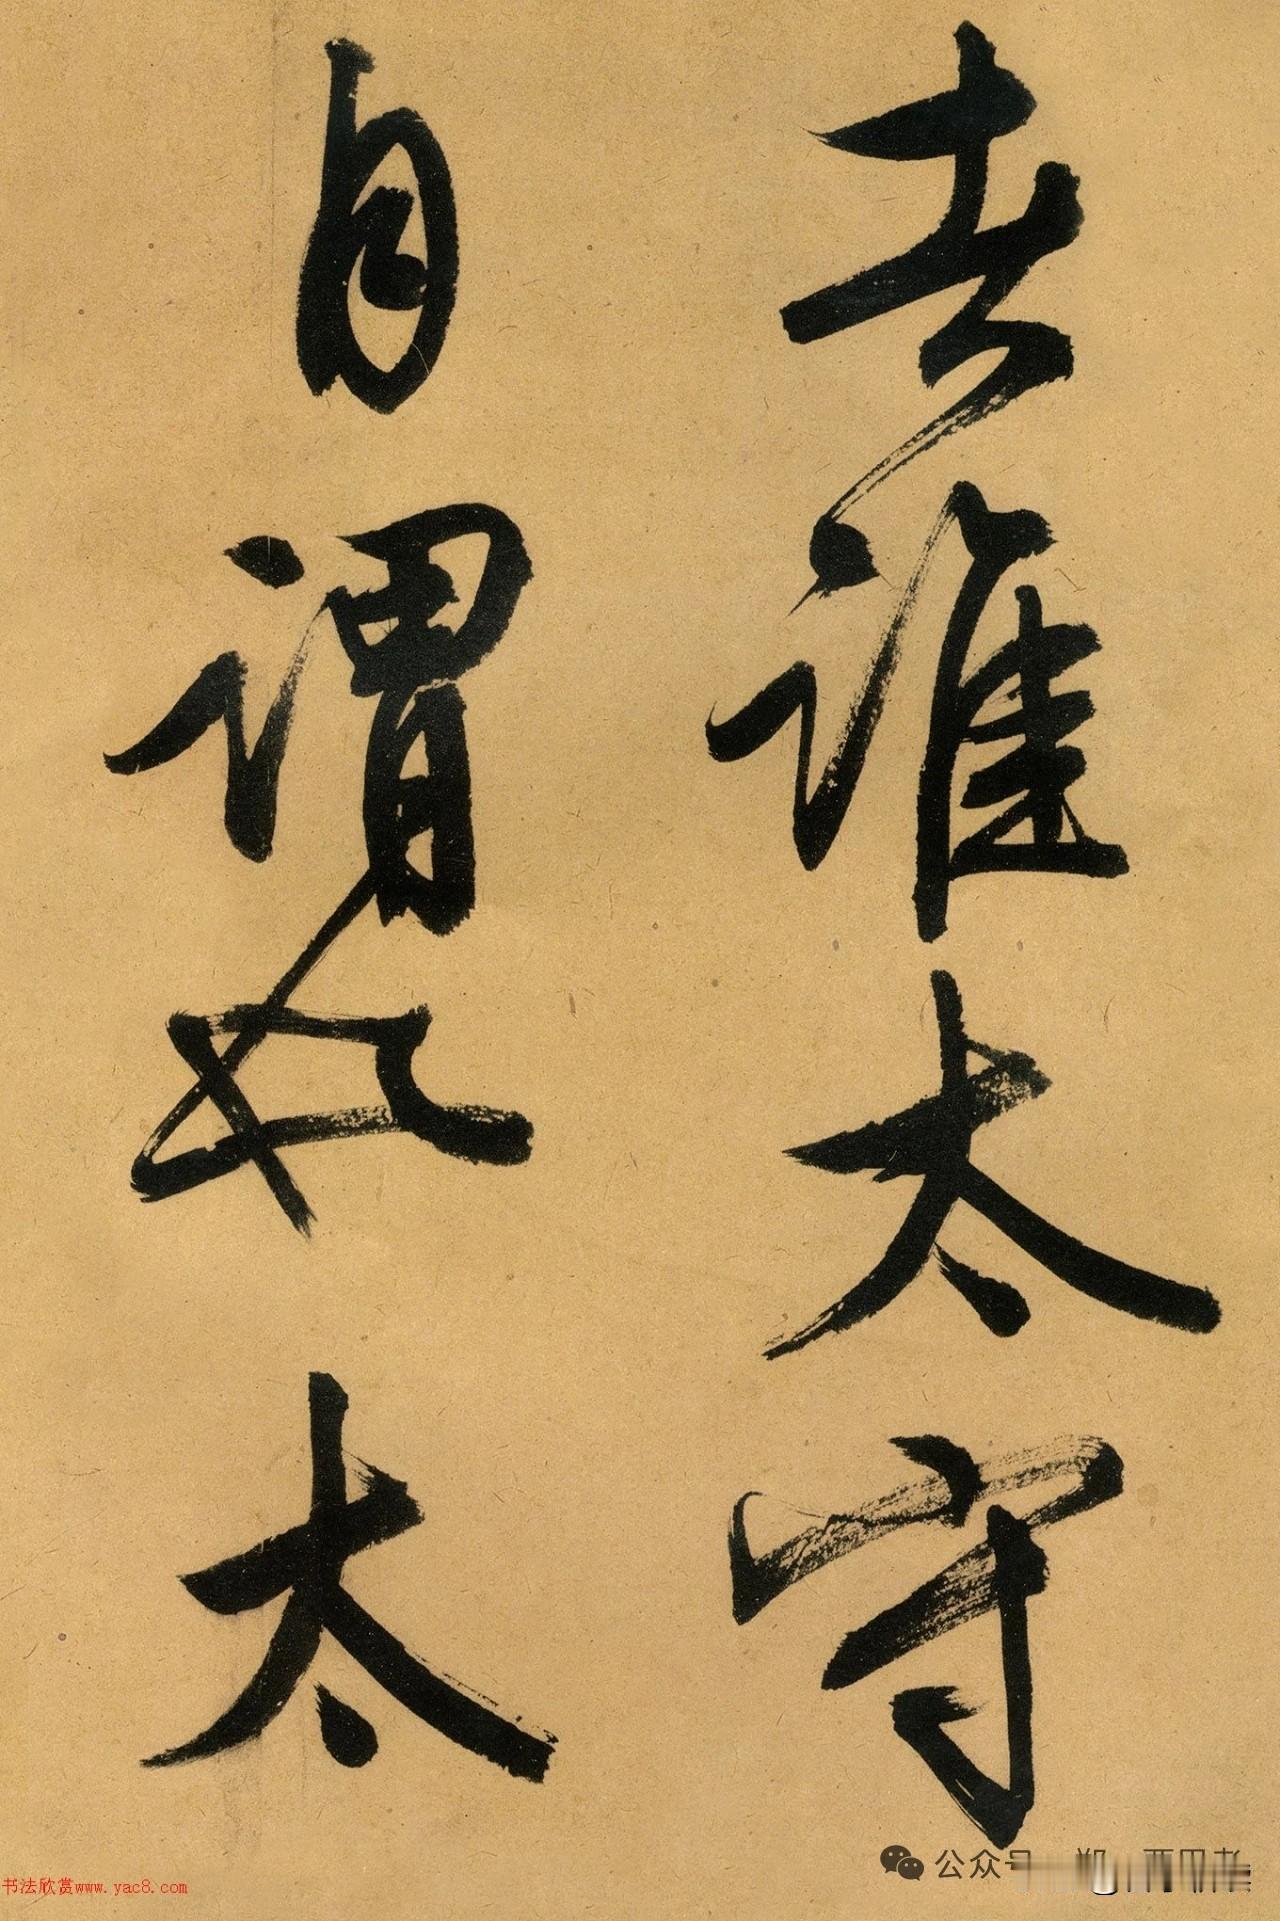 者誰太守
自謂也太
公众号
书法欣赏www.yac8.com